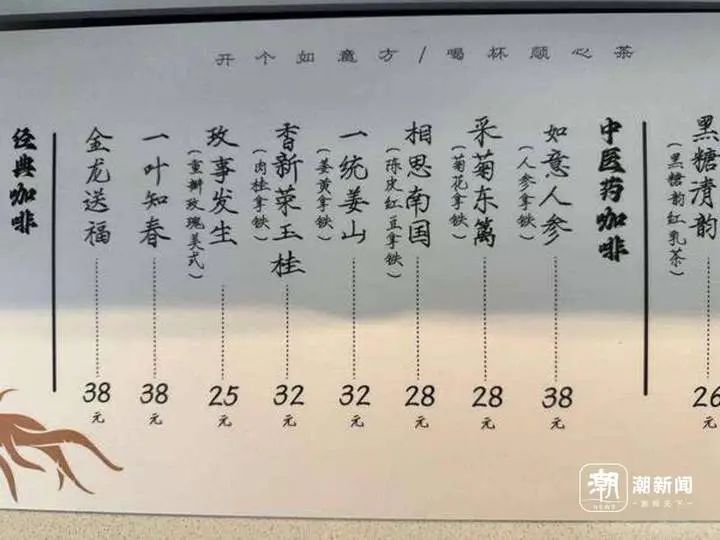 开个如意方/喝杯顺心茶
黑糖清韵
(黑糖韵红乳茶)
26元
中医药咖啡
如意人参
(人参拿铁)
38元
采菊东篱
(菊花拿铁)
28元
相思南国
(陈皮红豆拿铁)
28元
一统姜山
(姜黄拿铁)
32元
香新荣玉桂
(肉桂拿铁)
32元
玫事发生
(重瓣玫瑰美式)
25元
一叶知春
38元
金龙送福
38元
经典咖啡
潮新闻
NEWS